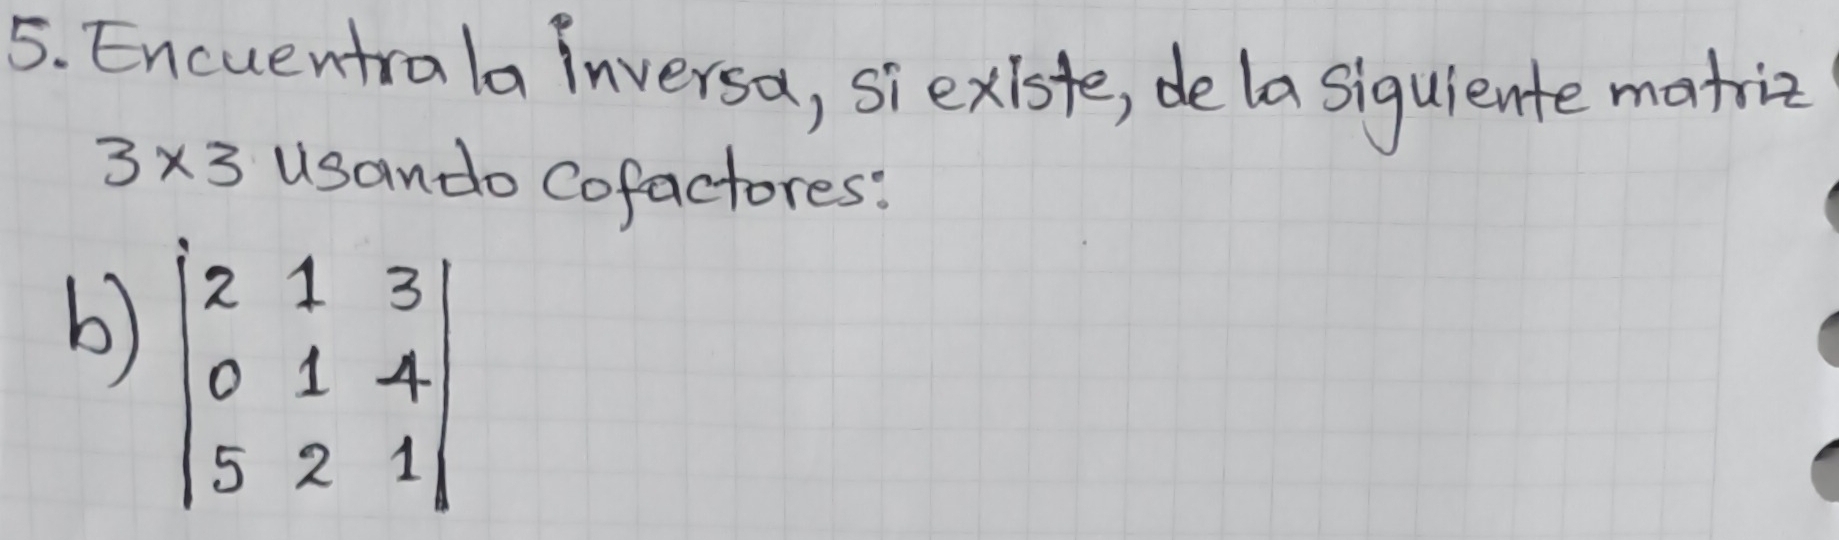 5. Encuentra la inversa, si existe, de la siguiente matriz
3×3 usando cofactores:
b) |2 1 3|
|0 1 4|
|5 2 1|